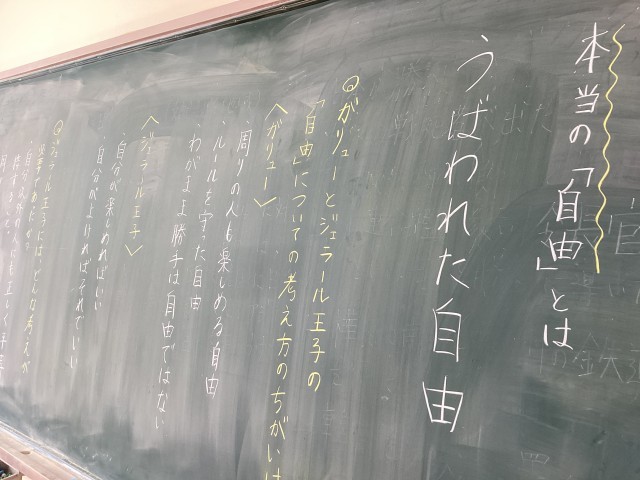 本当の「自由」とは
うばわれた自由
◎ガリューとジェラール王子の
「自由」についての考え方のちがいは
〈ガリュー〉
・周りの人も楽しめる自由
・ルールを守った自由
・わがまま勝手は自由ではない
〈ジェラール王子〉
・自分が楽しめればいい
・自分がよければそれでいい
◎ジェラール王子には、どんな考えが